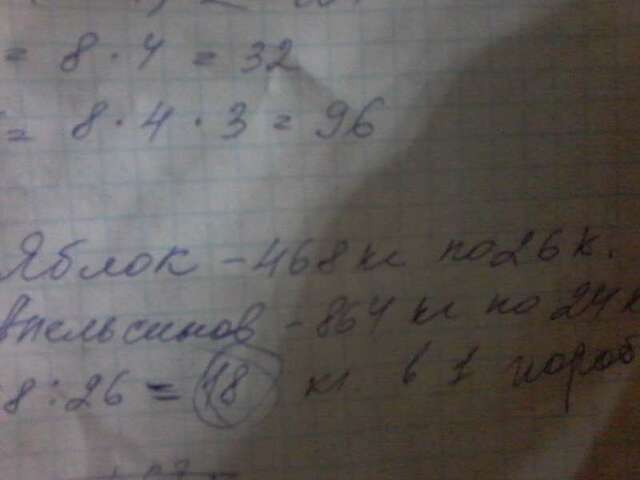 = 8 · 4 = 32
= 8 · 4 · 3 = 96
Яблок – 468 кг по 26 к.
Апельсинов – 864 кг по 24 к
8 : 26 = 18 кг в 1 короб